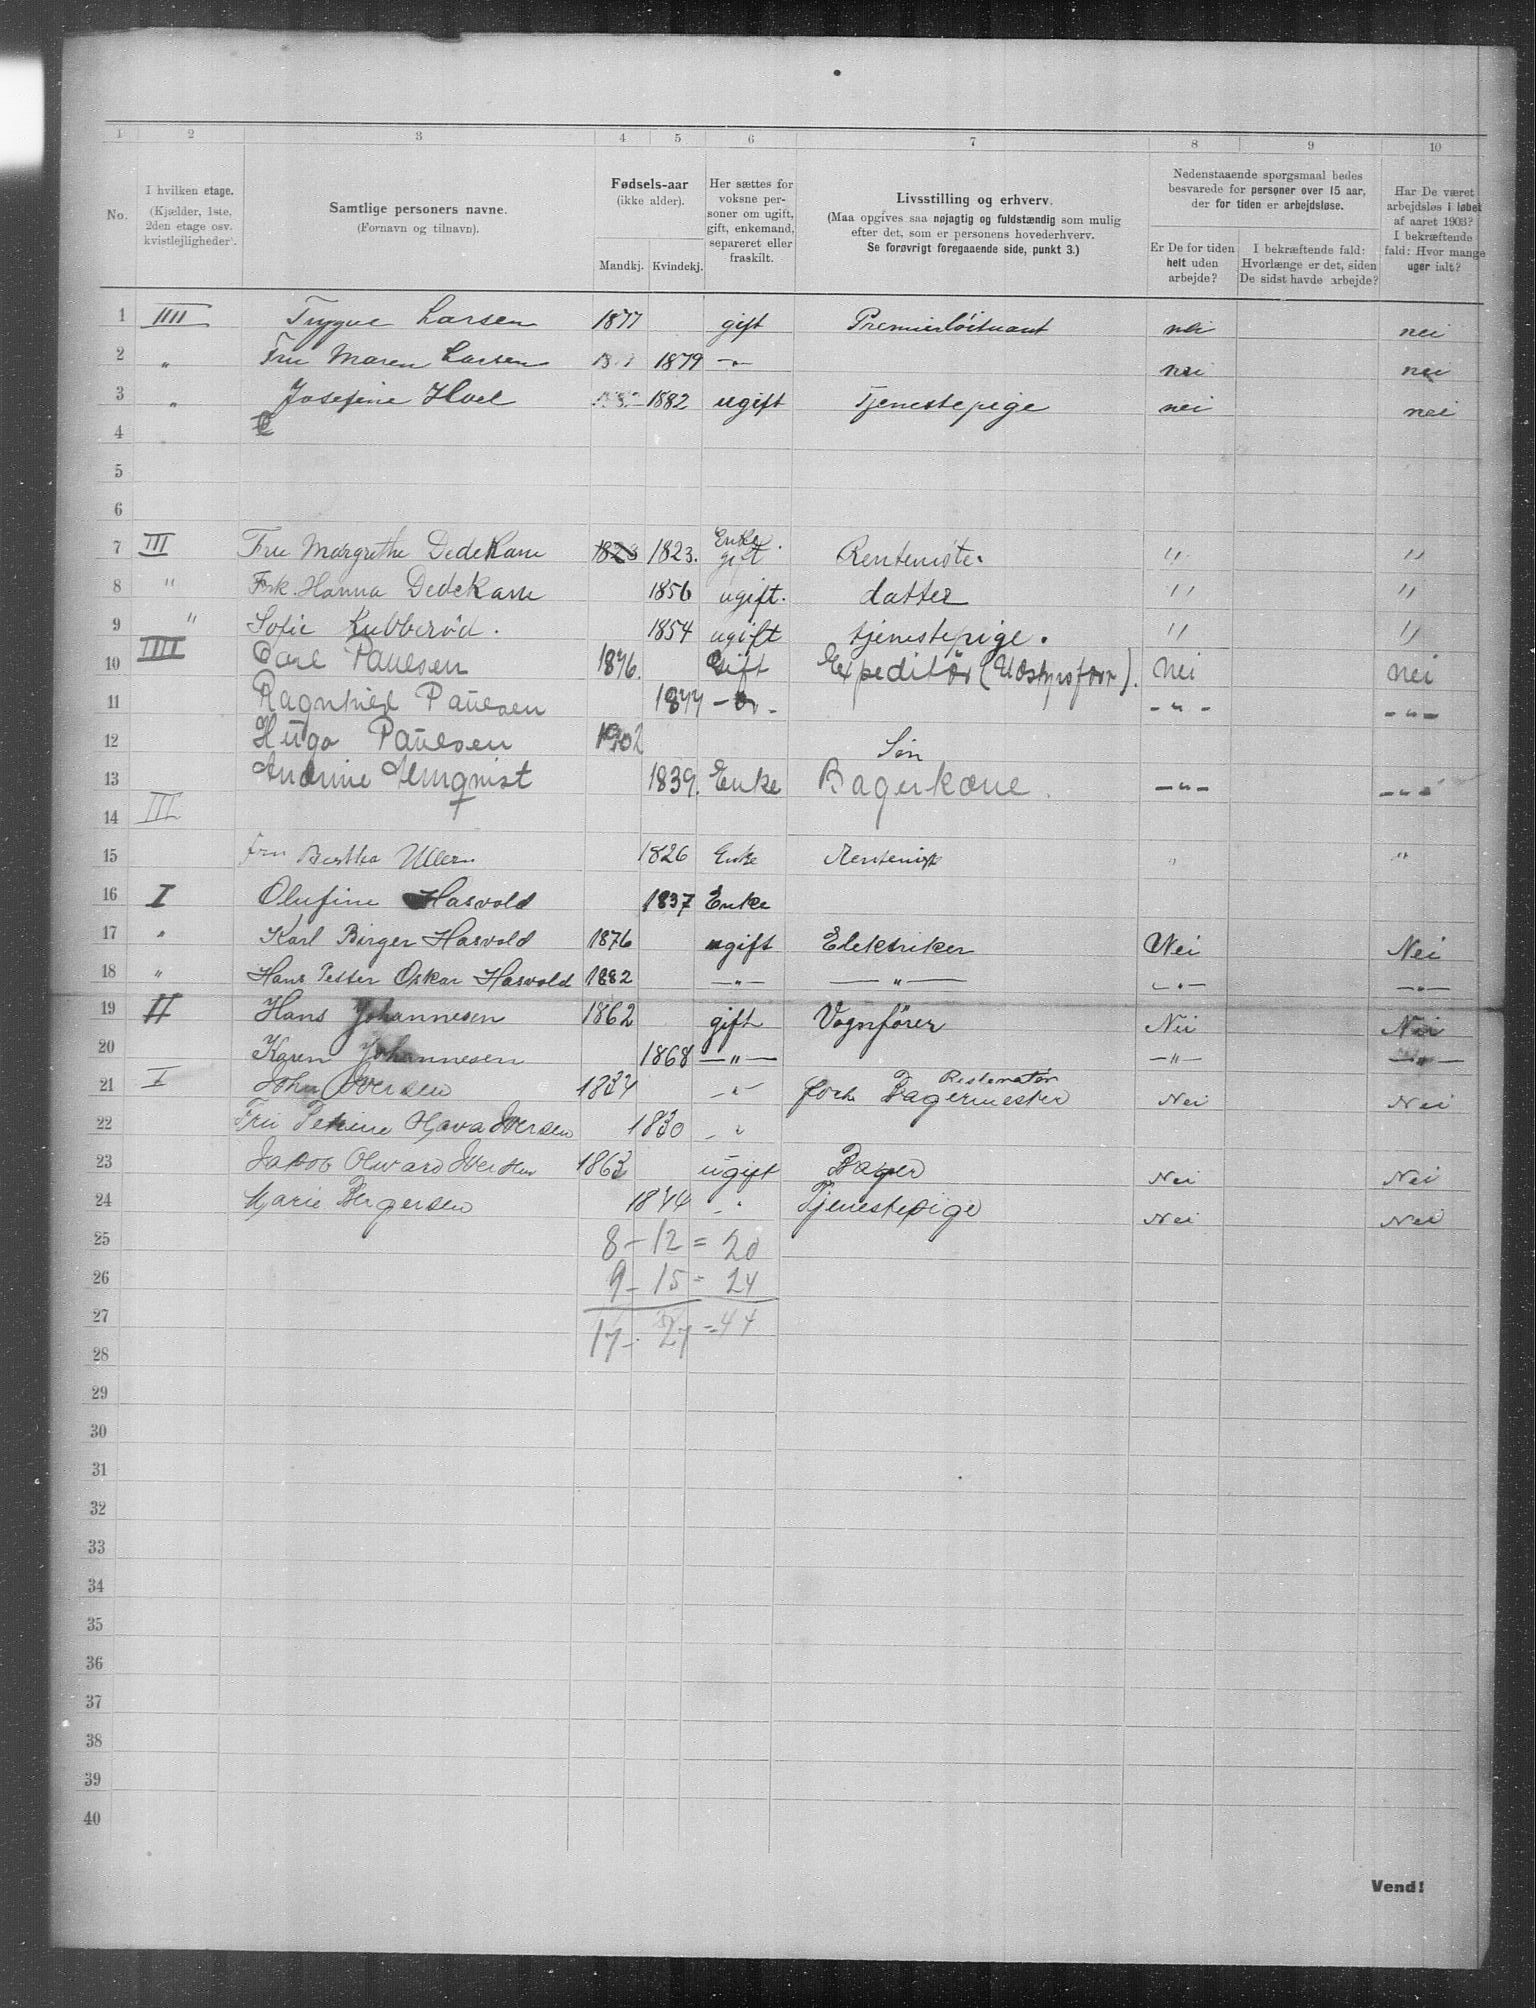 1 2 3 4 5 6 7 8 9 10
No.
I hvilken etage.
(Kjælder, 1ste, 2den etage osv. kvistlejligheder).
Samtlige personers navne.
(Fornavn og tilnavn).
Fødsels-aar
(ikke alder).
Mandkj. Kvindekj.
Her sættes for voksne personer om ugift, gift, enkemand, separeret eller fraskilt.
Livsstilling og erhverv.
(Maa opgives saa nøjagtig og fuldstændig som mulig efter det, som er personens hovederhverv.
Se forøvrigt foregaaende side, punkt 3.)
Nedenstaaende spørgsmaal bedes besvarede for personer over 15 aar, der for tiden er arbejdsløse.
Er De for tiden helt uden arbejde?
I bekræftende fald: Hvorlænge er det, siden De sidst havde arbejde?
Har De været arbejdsløs i løbet af aaret 1903? I bekræftende fald: Hvor mange uger ialt?
1 IIII Trygve Larsen 1877 gift Premierløitnant nei nei
2 " Fru Maren Larsen 1879 -"- nei nei
3 " Josefine Hoel 1882 ugift Tjenestepige nei nei
4
5
6
7 III Fru Margrethe Dedekam 1823 1823. Enke gift Renteniste. " "
8 " Frk. Hanna Dedekam 1856 ugift. datter " "
9 " Sofie Kubberød. 1854 ugift tjenestepige. " "
10 IIII Carl Paulsen 1876. Gift Expeditør (Udstyrsforr). Nei nei
11 Ragnhild Paulsen 1877 -"- -"- -"-
12 Hugo Paulsen 1902 Søn
13 Andrine Almqvist 1839. Enke Bagerkone. -"- -"-
14 III
15 Fru Bertha Ullern 1826 Enke Rentenist " "
16 I Olufine Hasvold 1837 Enke
17 " Karl Birger Hasvold 1876 ugift Elektriker Nei Nei
18 " Hans Petter Oskar Hasvold 1882 -"- -"- -"- -"-
19 II Hans Johannesen 1862 gift Vognfører Nei Nei
20 Karen Johannesen 1868 -"- -"- -"-
21 I John Iversen 1834 " forh. Bagermester Nei Nei
22 Fru Iversen 1830 "
23 Jakob Iversen 1863 ugift Bager Nei Nei
24 Marie Bergersen 1844 " Tjenestepige Nei Nei
25 8 - 12 = 20
26 9 - 15 = 24
27 17 - 27 = 44
28
29
30
31
32
33
34
35
36
37
38
39
40
Vend!